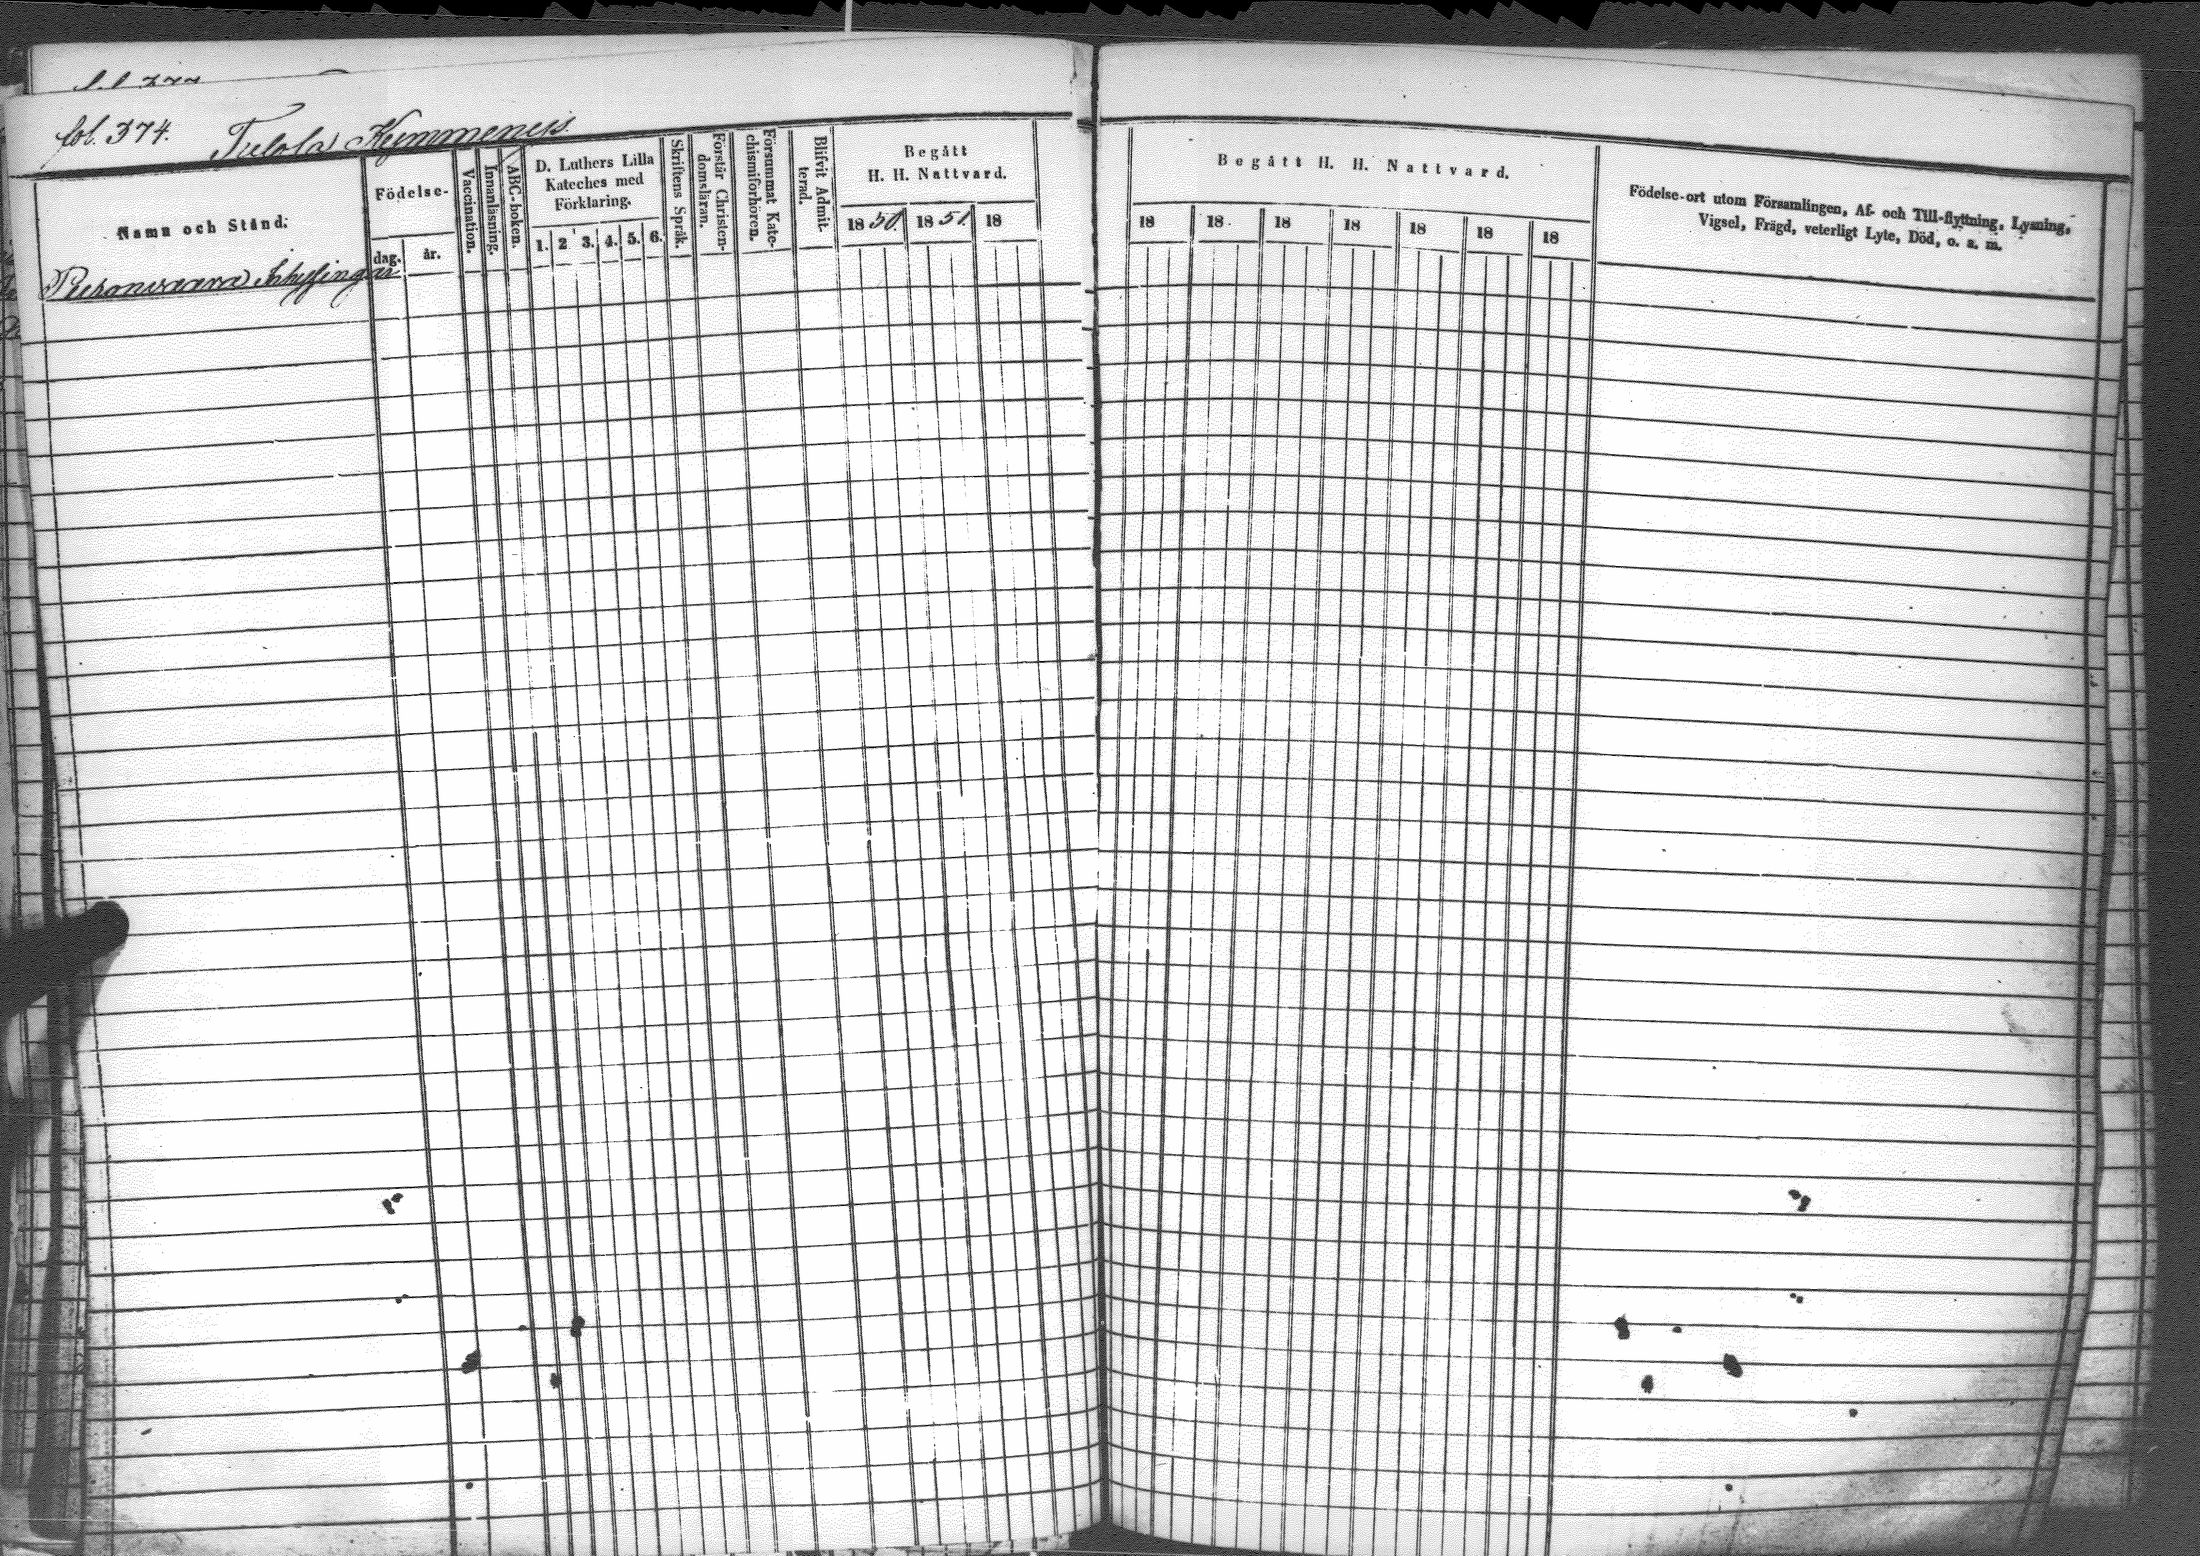 fol. 374. Tulola Kymmenes
Namn och Stånd.
Födelse-
dag. år.
Vaccination.
Innanläsning.
ABC-boken.
D. Luthers Lilla
Kateches med
Förklaring.
1. 2 3. 4. 5. 6.
Skriftens Språk.
Förstår Christen-
domsläran.
Försummat Kate-
chismiförhören.
Blifvit Admit-
terad.
Begått
H. H. Nattvard.
18 50. 18 51. 18
Begått H. H. Nattvard.
18 18 18 18 18 18 18
Födelse-ort utom Församlingen, Af- och Till-flyttning, Lysning,
Vigsel, Frägd, veterligt Lyte, Död, o. s. m.
Inhysingar